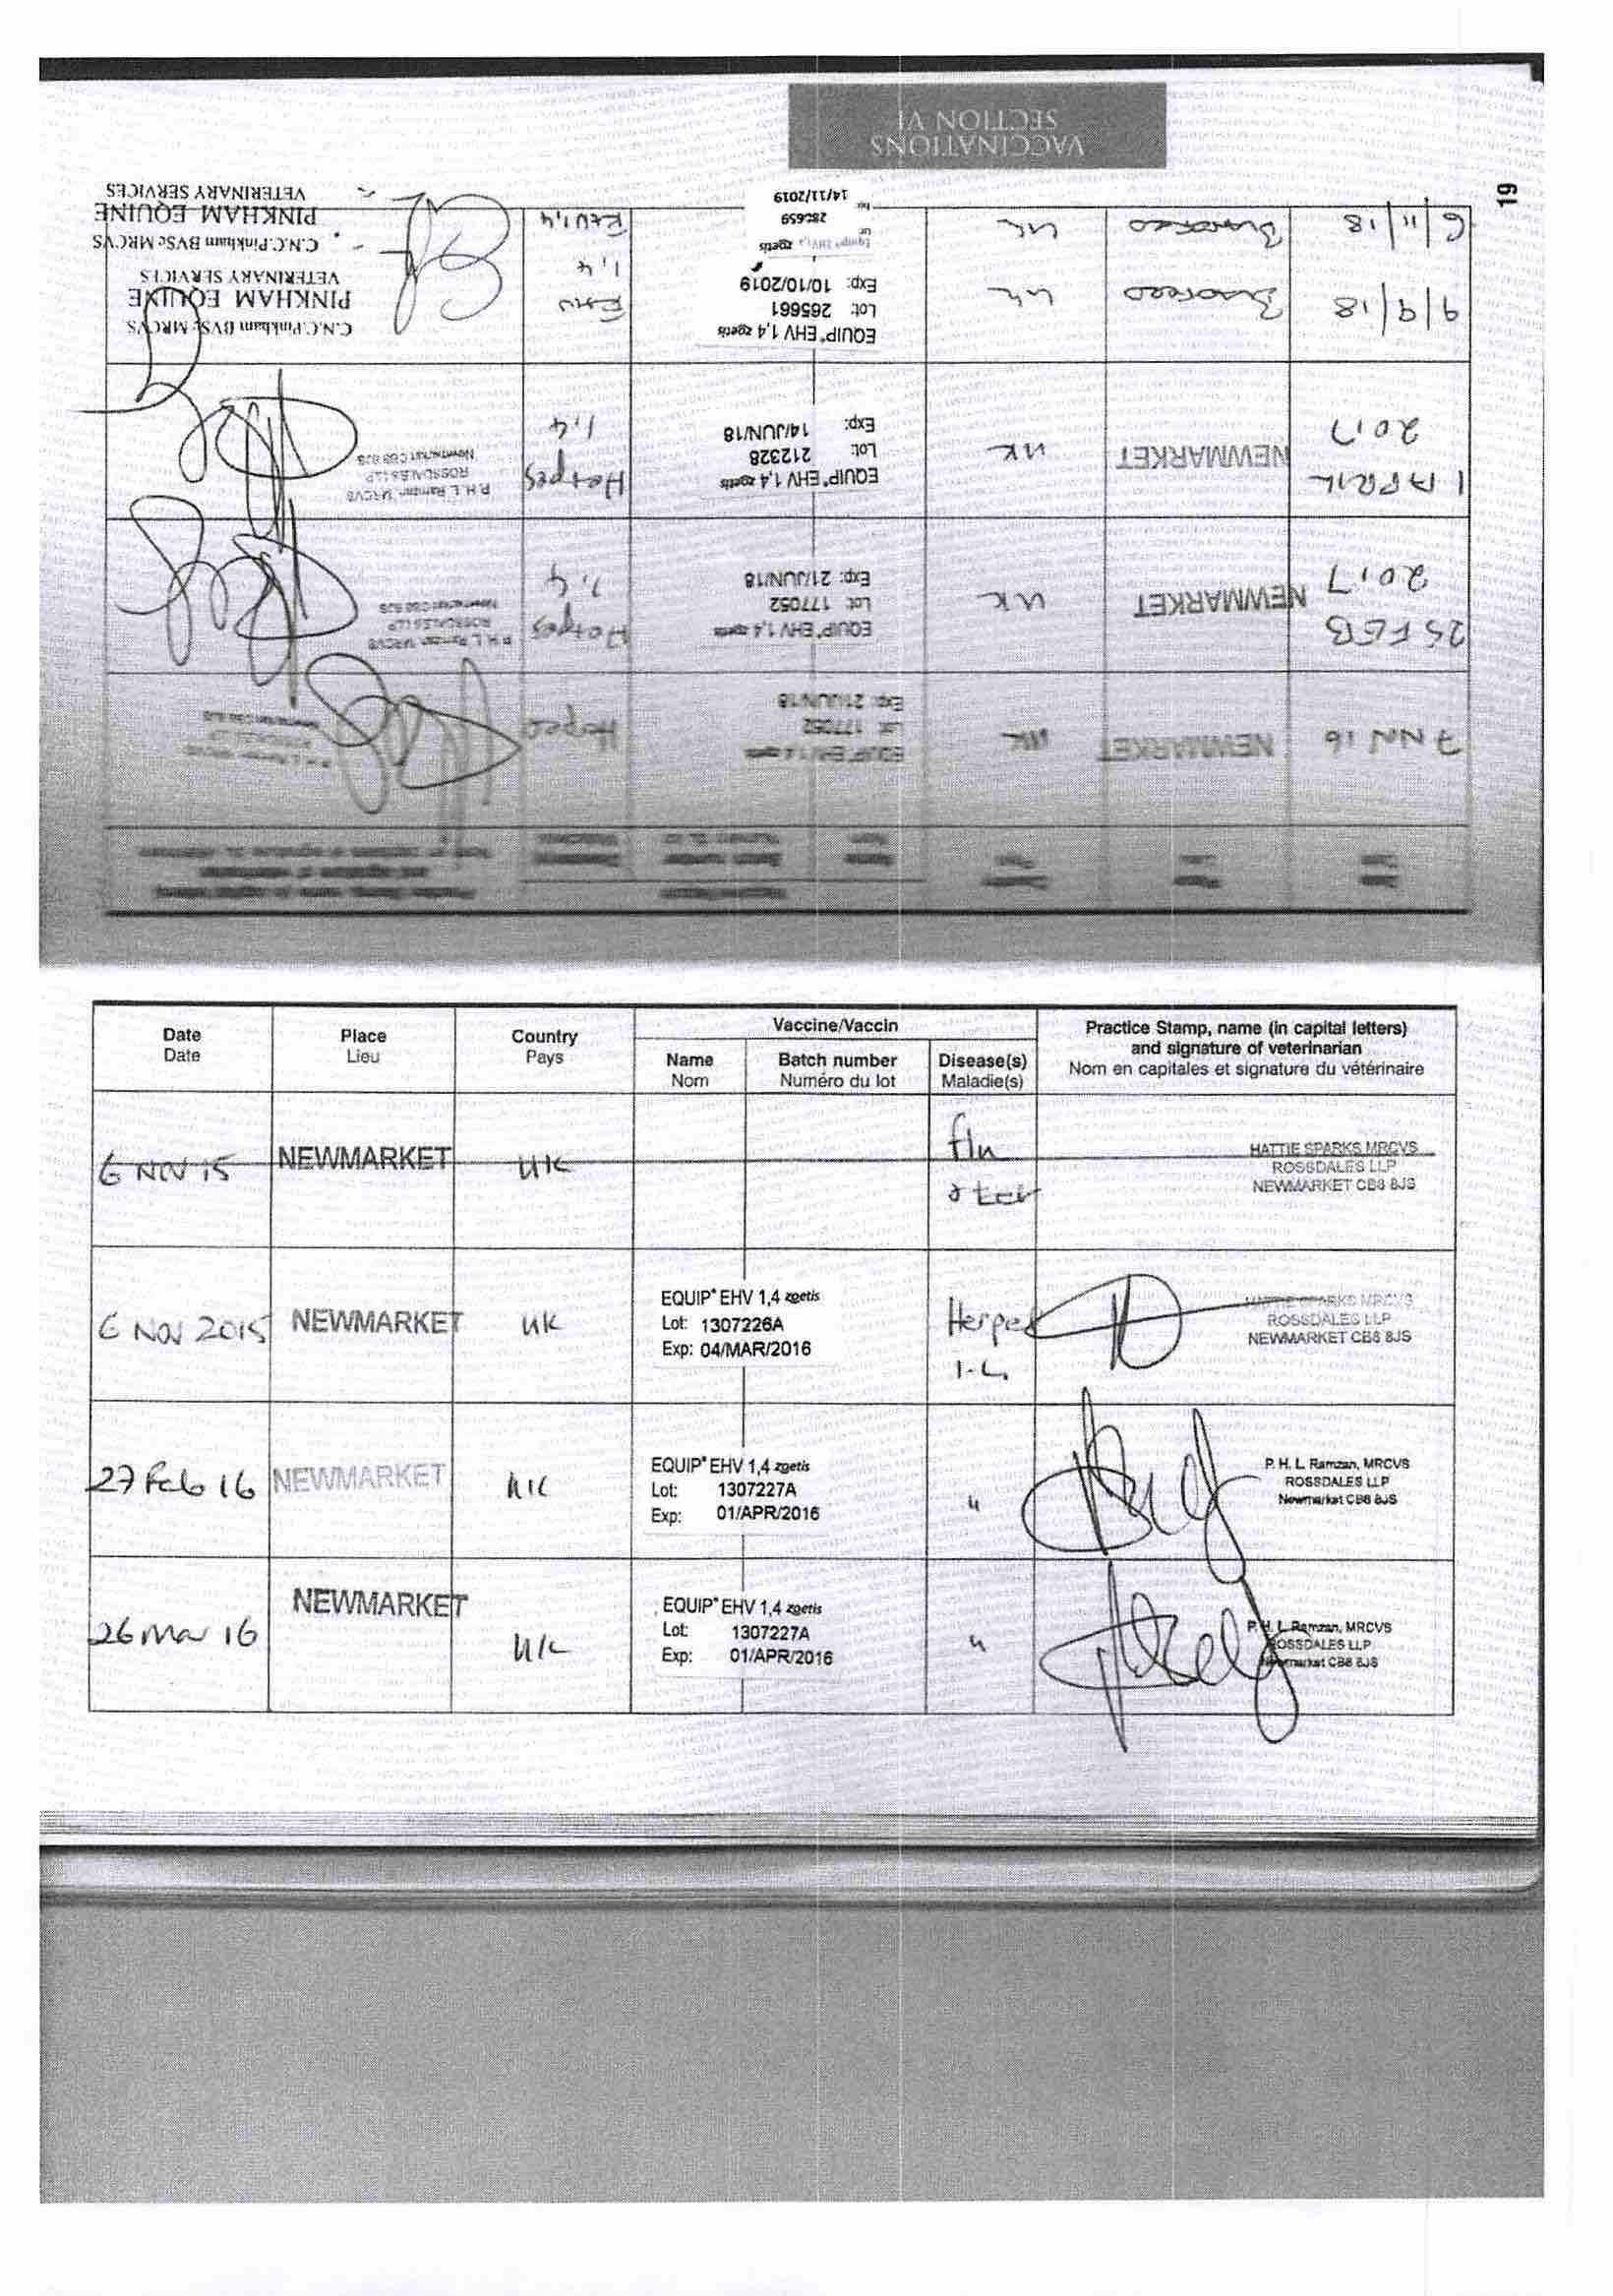 VACCINATIONS
SECTION VI
19
7 Nov 16
NEWMARKET
UK
EQUIP EHV 1,4 zoetis
Lot: 177052
Exp: 21/JUN/18
Herpes
25 FEB
2017
NEWMARKET
UK
EQUIP* EHV 1,4 zoetis
Lot: 177052
Exp: 21/JUN/18
Herpes
1,4
P. H. L. Ramzan, MRCVS
ROSSDALES LLP
Newmarket CB8 8JS
1 APRIL
2017
NEWMARKET
UK
EQUIP* EHV 1,4 zoetis
Lot: 212328
Exp: 14/JUN/18
Herpes
1,4
P. H. L. Ramzan, MRCVS
ROSSDALES LLP
Newmarket CB8 8JS
9/9/18
UK
EQUIP* EHV 1,4 zoetis
Lot: 265661
Exp: 10/10/2019
EHV
1,4
C.N.C. Pinkham BVSc MRCVS
PINKHAM EQUINE
VETERINARY SERVICES
6/11/18
UK
Equip EHV1,4 zoetis
282659
14/11/2019
EHV1,4
C.N.C. Pinkham BVSc MRCVS
PINKHAM EQUINE
VETERINARY SERVICES
Date
Date
Place
Lieu
Country
Pays
Vaccine/Vaccin
Name
Nom
Batch number
Numéro du lot
Disease(s)
Maladie(s)
Practice Stamp, name (in capital letters)
and signature of veterinarian
Nom en capitales et signature du vétérinaire
6 Nov 15
NEWMARKET
UK
flu
& tet
HATTIE SPARKS MRCVS
ROSSDALES LLP
NEWMARKET CB8 8JS
6 Nov 2015
NEWMARKET
UK
EQUIP* EHV 1,4 zoetis
Lot: 1307226A
Exp: 04/MAR/2016
Herpes
1-4
HATTIE SPARKS MRCVS
ROSSDALES LLP
NEWMARKET CB8 8JS
27 Feb 16
NEWMARKET
UK
EQUIP* EHV 1,4 zoetis
Lot: 1307227A
Exp: 01/APR/2016
"
P. H. L. Ramzan, MRCVS
ROSSDALES LLP
Newmarket CB8 8JS
26 Mar 16
NEWMARKET
UK
EQUIP* EHV 1,4 zoetis
Lot: 1307227A
Exp: 01/APR/2016
"
P. H. L. Ramzan, MRCVS
ROSSDALES LLP
Newmarket CB8 8JS